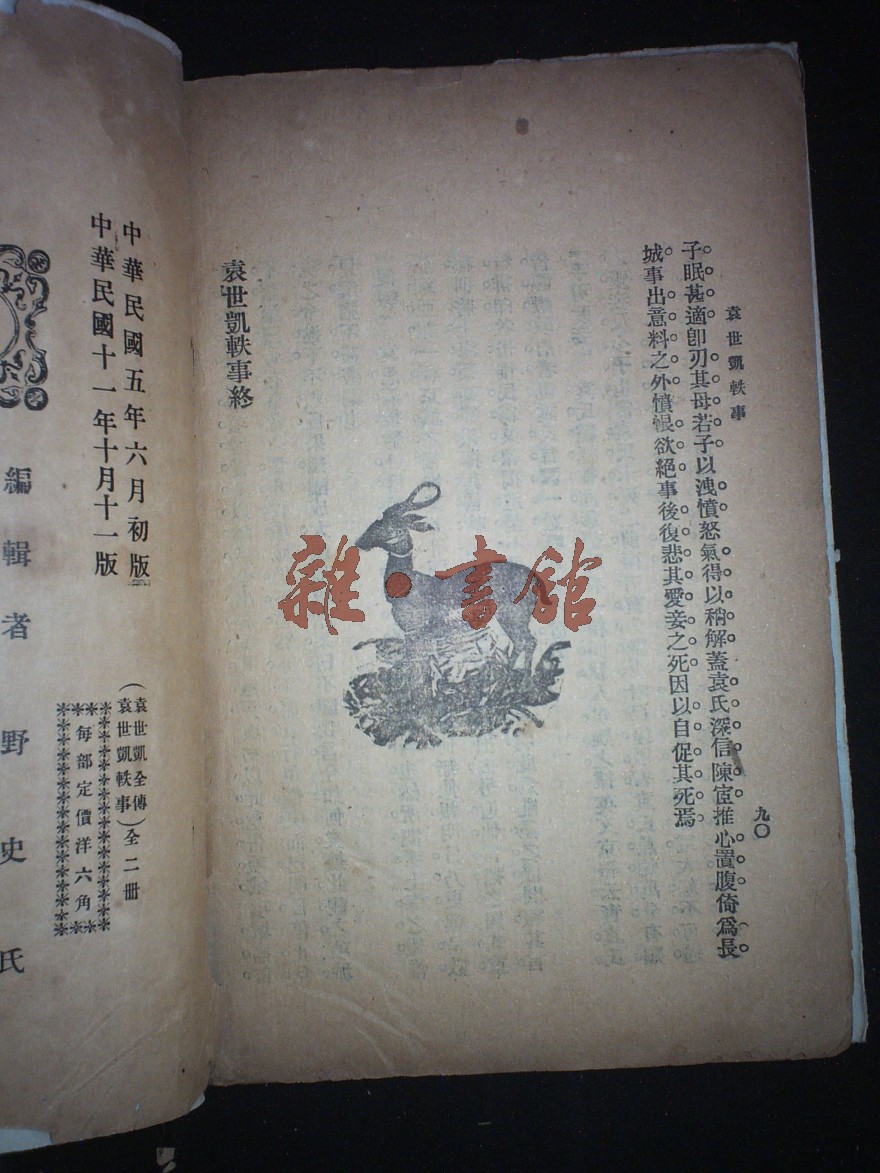 袁世凱軼事
九〇
子眠甚適卽刃其母若子以洩憤怒氣得以稍解蓋袁氏深信陳宧推心置腹倚爲長
城事出意料之外憤恨欲絕事後復悲其愛妾之死因以自促其死焉
袁世凱軼事終
雜·書館
中華民國五年六月初版
中華民國十一年十月十一版
(袁世凱全傳
袁世凱軼事)全二冊
每部定價洋六角
編輯者野史氏